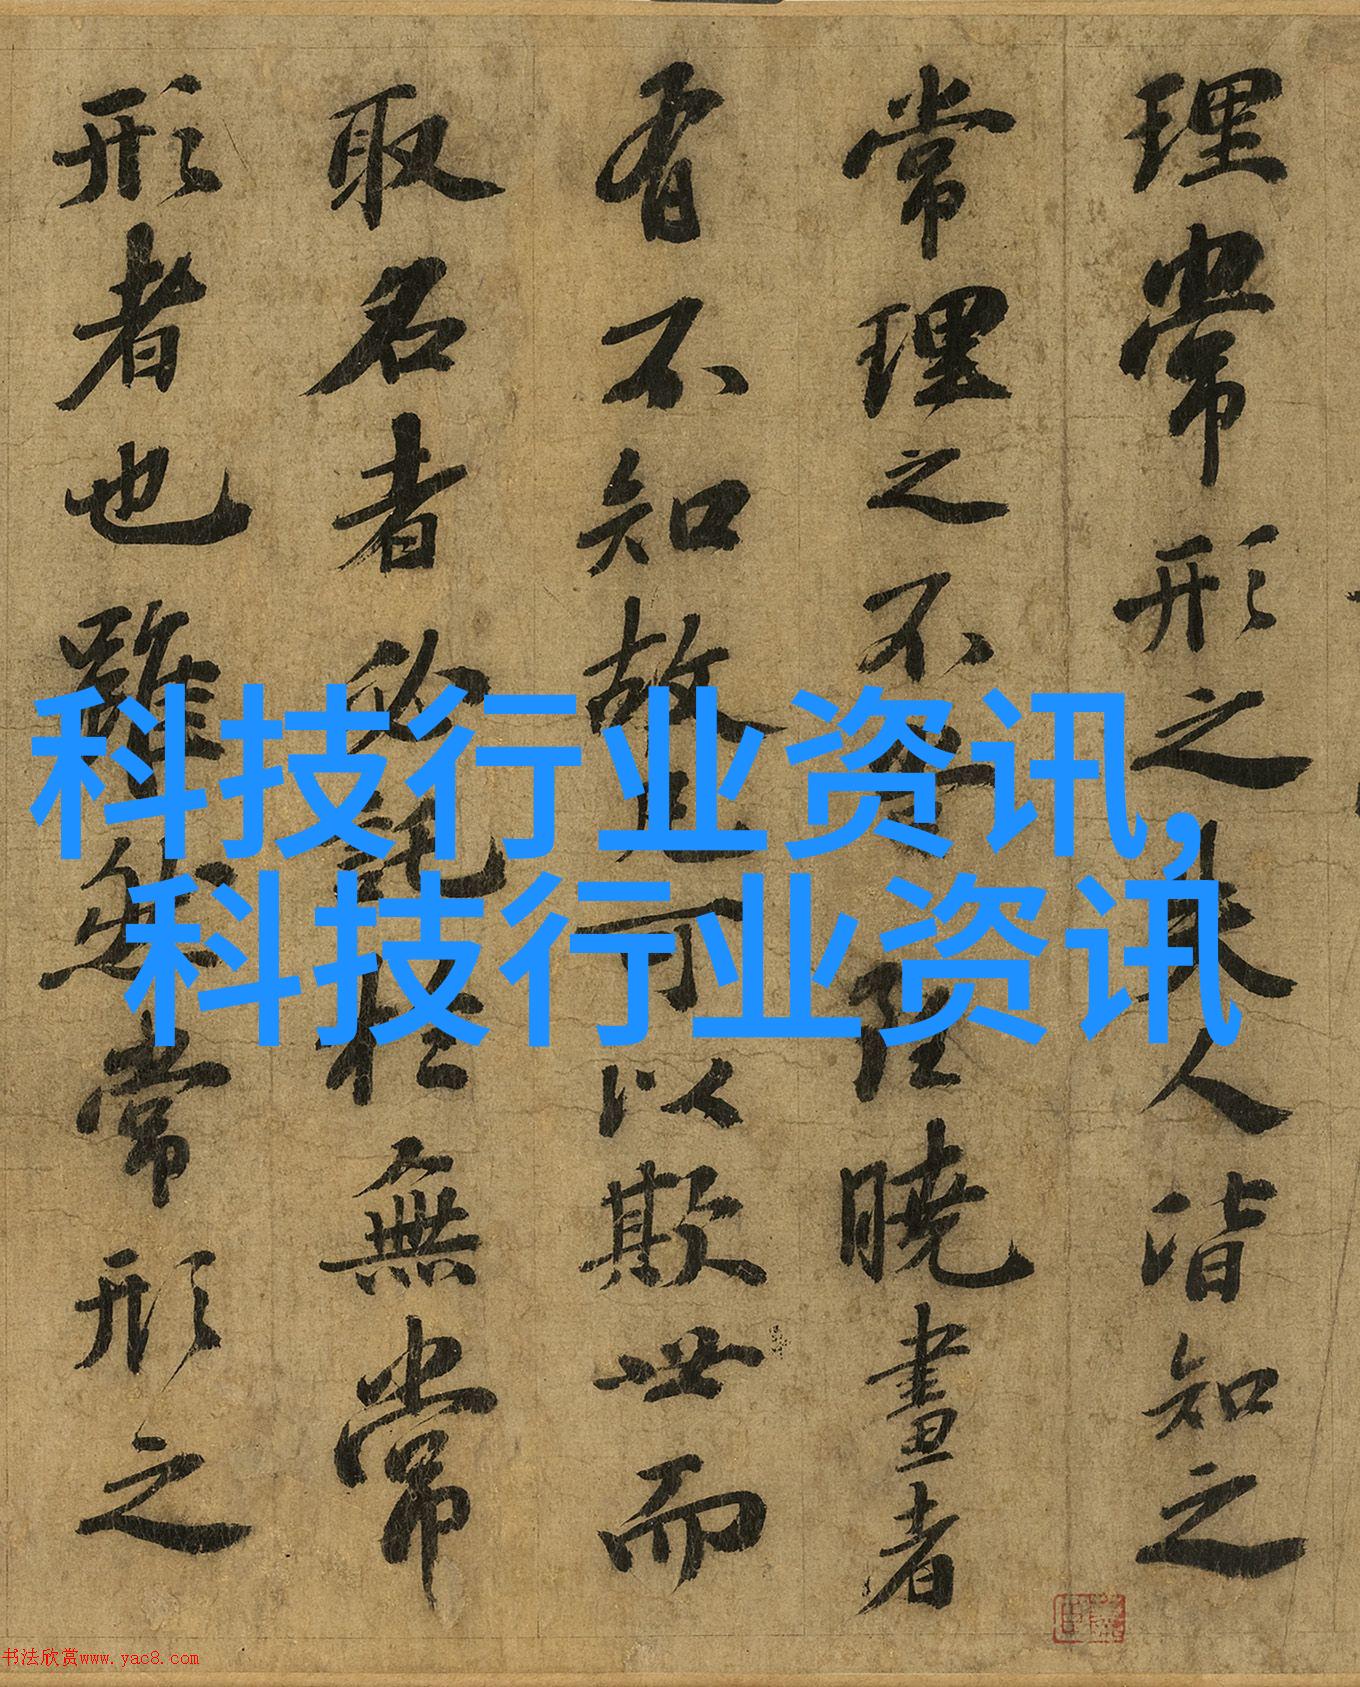 理常形之失人皆知之
常理之不曉畫者
有不知故凡可以欺世而
取名者必託於無常
形者也雖然常形之
科技行业资讯,
科技行业资讯
书法欣赏www.yac8.com